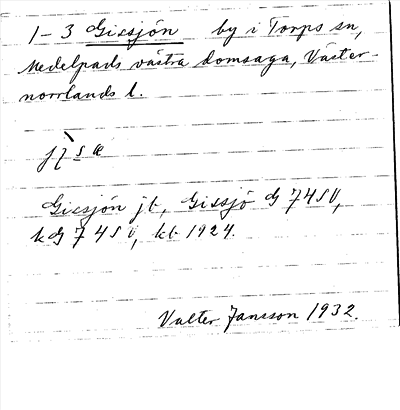 1-3 Gissjön by i Torps sn,
Medelpads västra domsaga, Väster-
norrlands l.
Gissjön jb, Gissjö G 74 SV,
kG 74 SV, kb 1924.
Valter Jansson 1932.